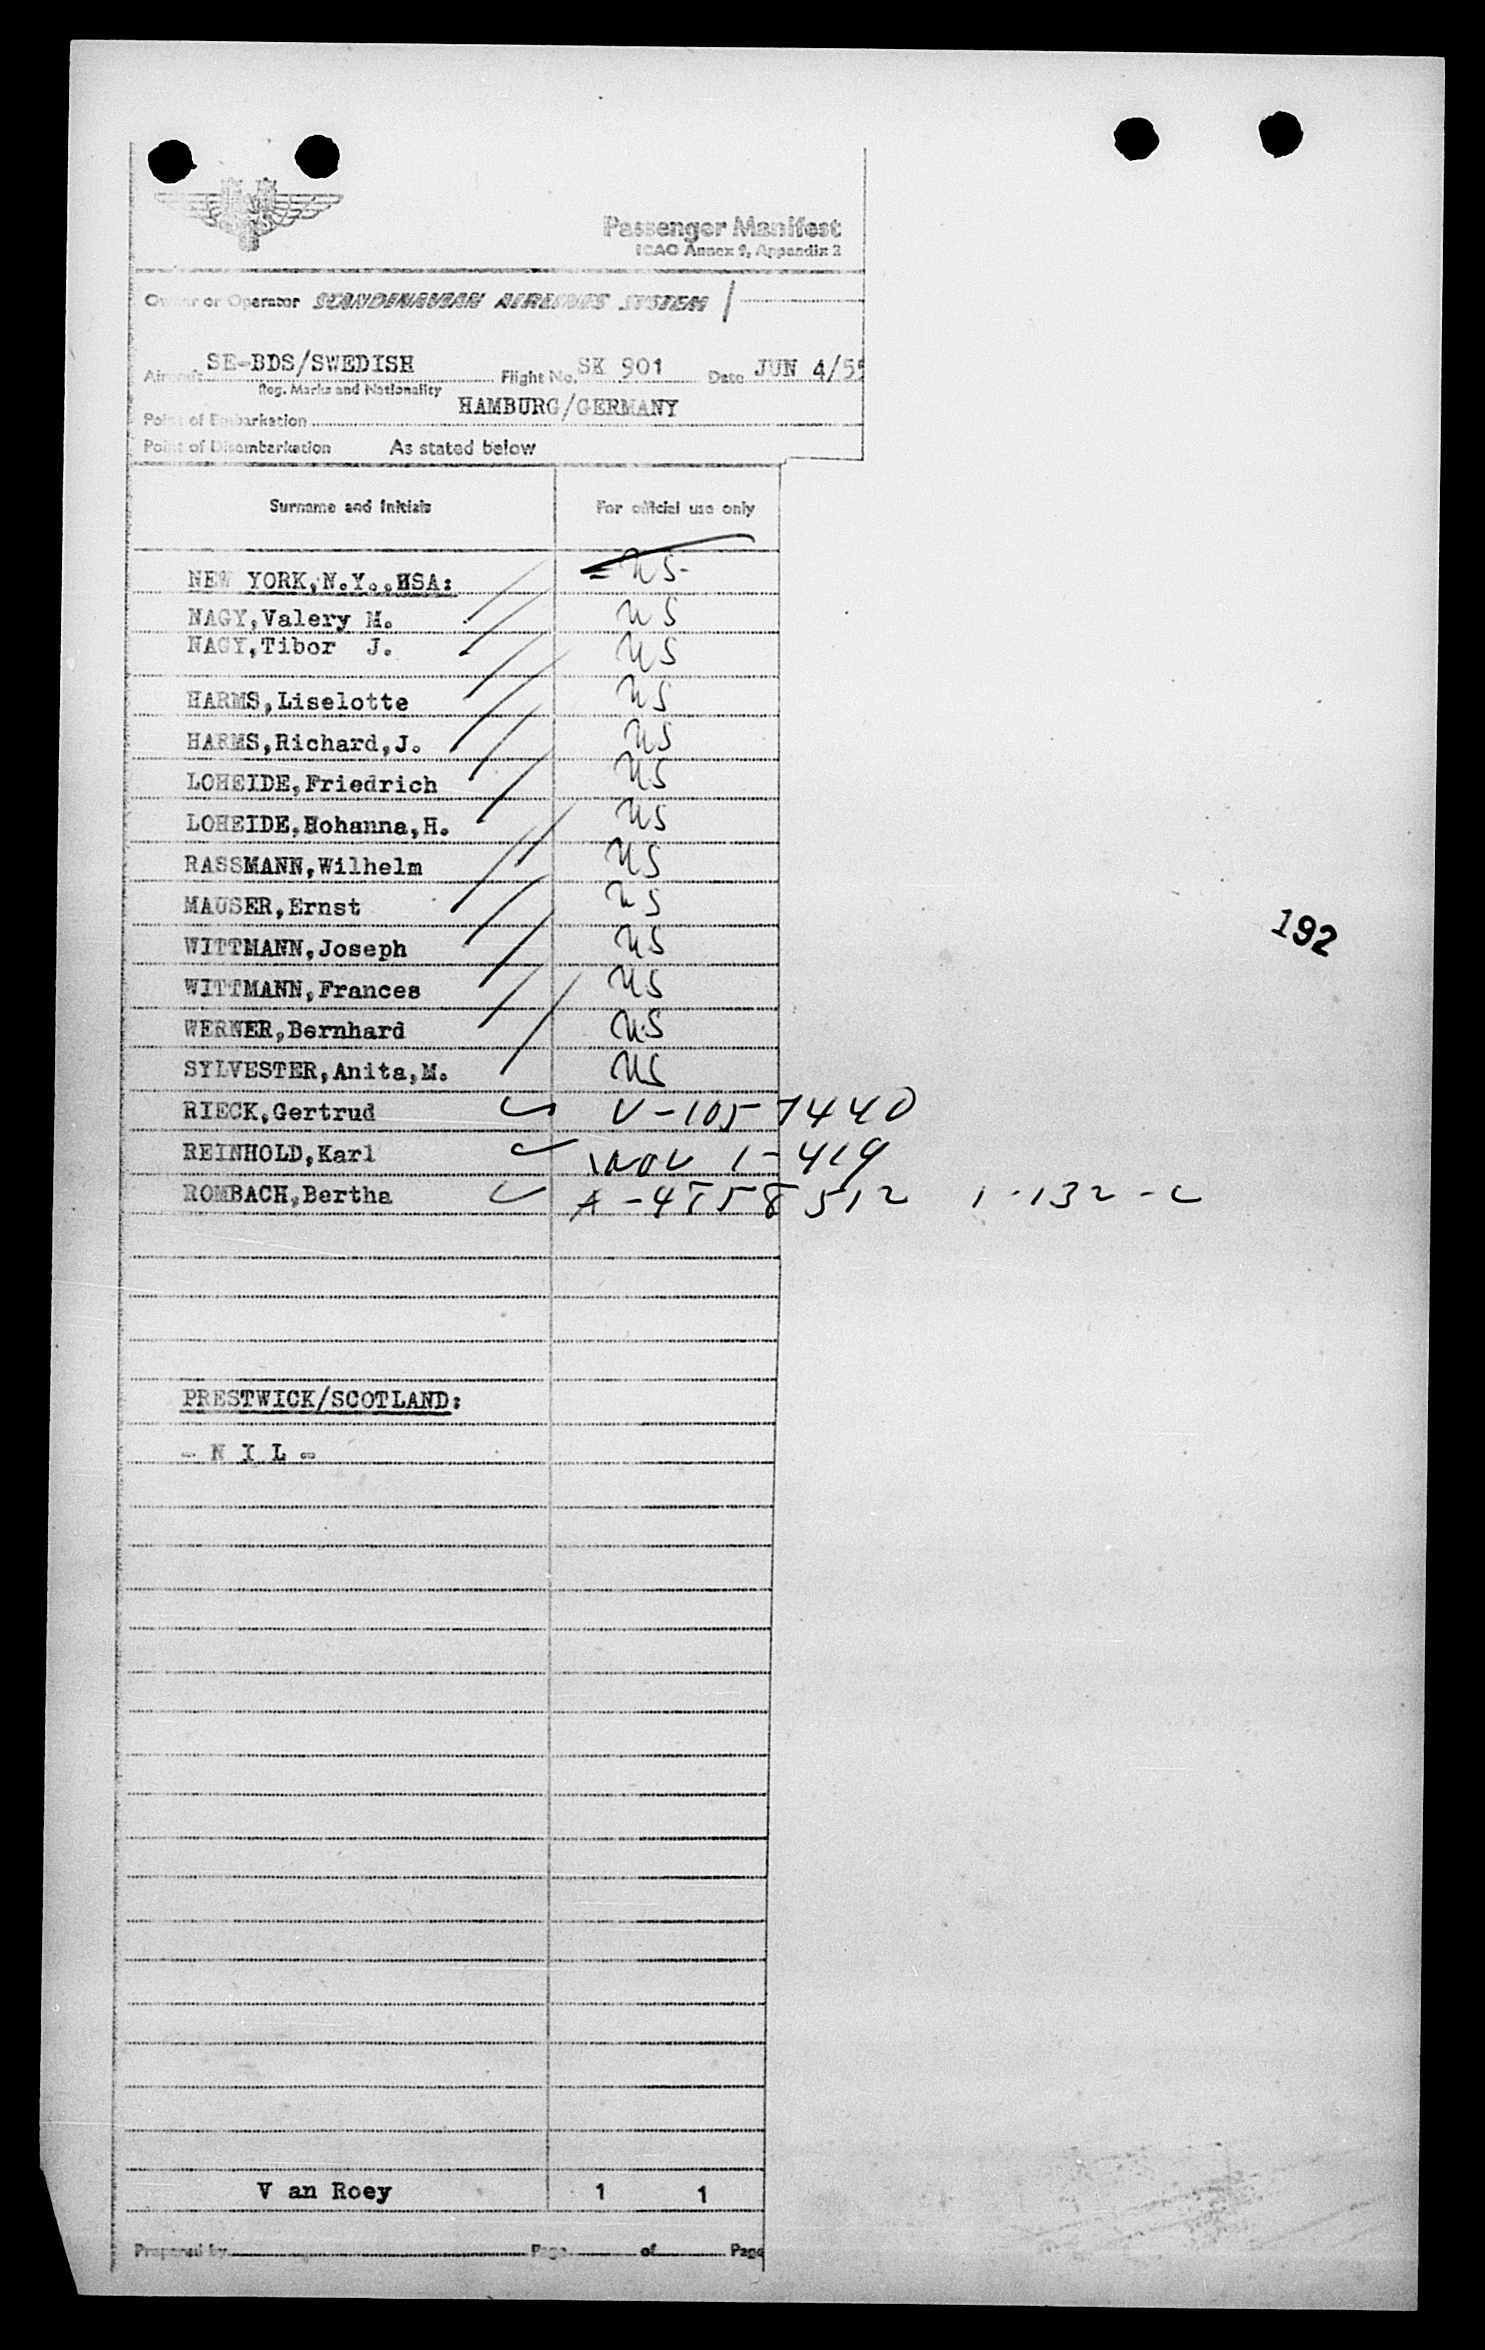 Passenger Manifest
ICAO Annex 9, Appendix 2
Owner or Operator SCANDINAVIAN AIRLINES SYSTEM
Aircraft SE-BDS/SWEDISH Flight No. SK 901 Date JUN 4/55
Reg. Marks and Nationality
Point of Embarkation HAMBURG/GERMANY
Point of Disembarkation As stated below
Surname and Initials For official use only
NEW YORK,N.Y.,USA: US
NAGY,Valery M. US
NAGY,Tibor J. US
HARMS,Liselotte US
HARMS,Richard,J. US
LOHEIDE,Friedrich US
LOHEIDE,Hohanna,H. US
RASSMANN,Wilhelm US
MAUSER,Ernst US
192
WITTMANN,Joseph US
WITTMANN,Frances US
WERNER,Bernhard US
SYLVESTER,Anita,M. US
RIECK,Gertrud V-1057440
REINHOLD,Karl 1-419
ROMBACH,Bertha 1-132-
PRESTWICK/SCOTLAND:
- N I L -
V an Roey 1 1
Prepared by Page of Page